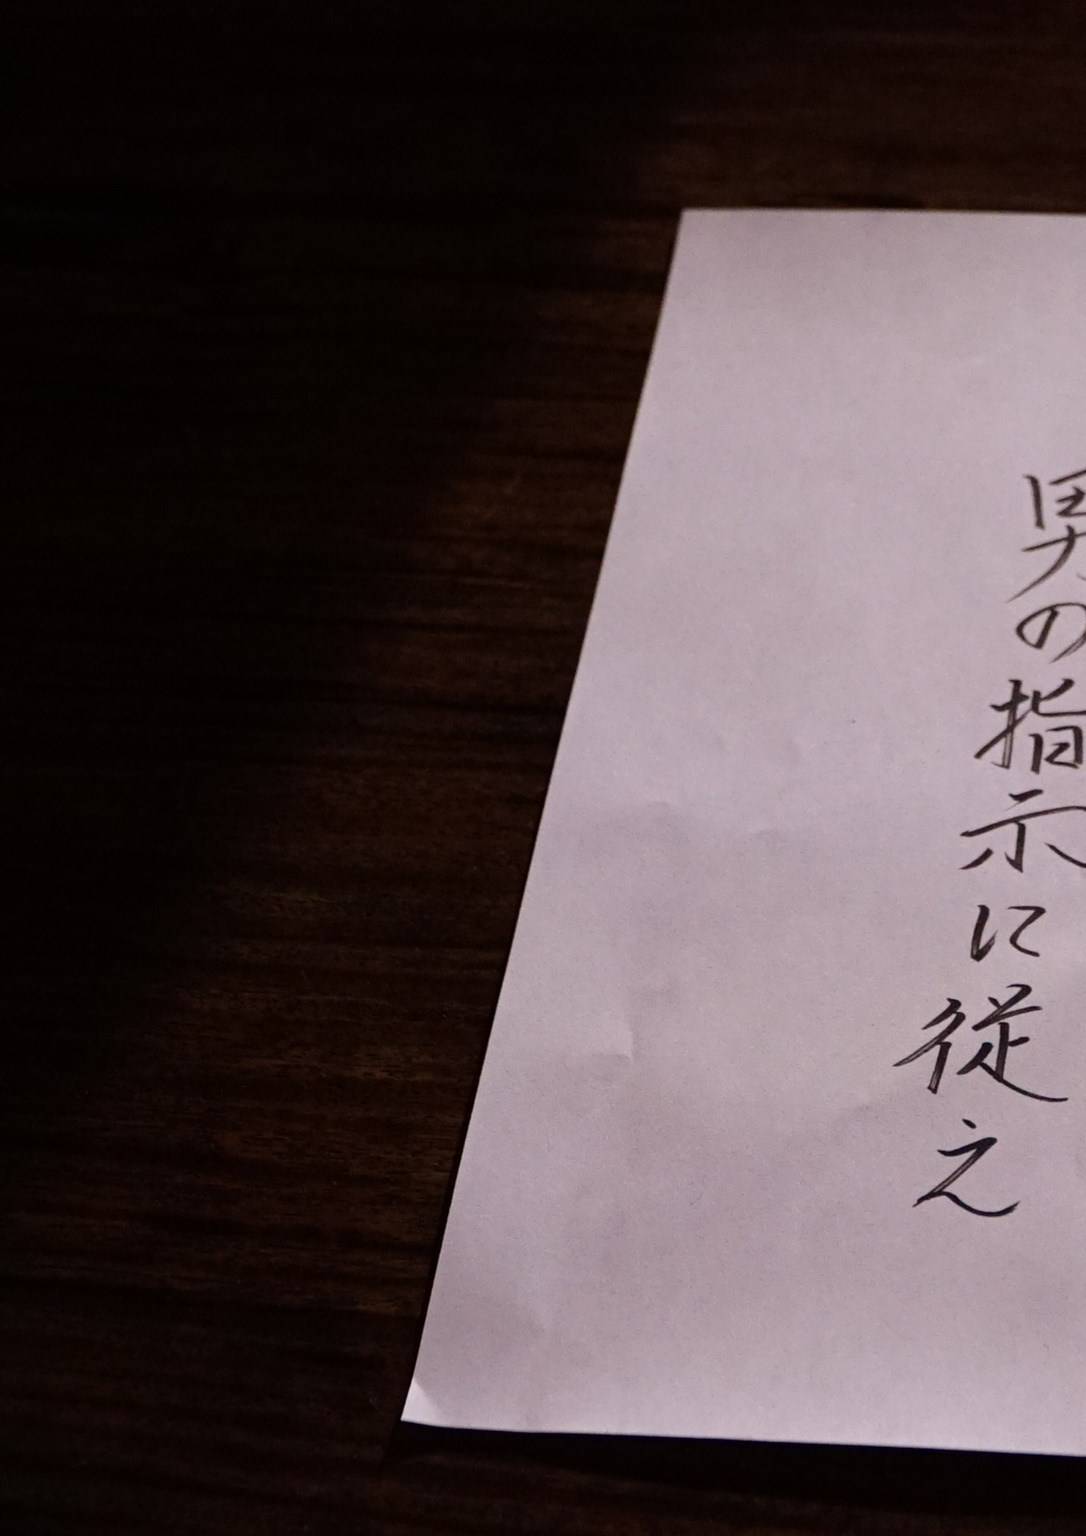 男の指示に従え